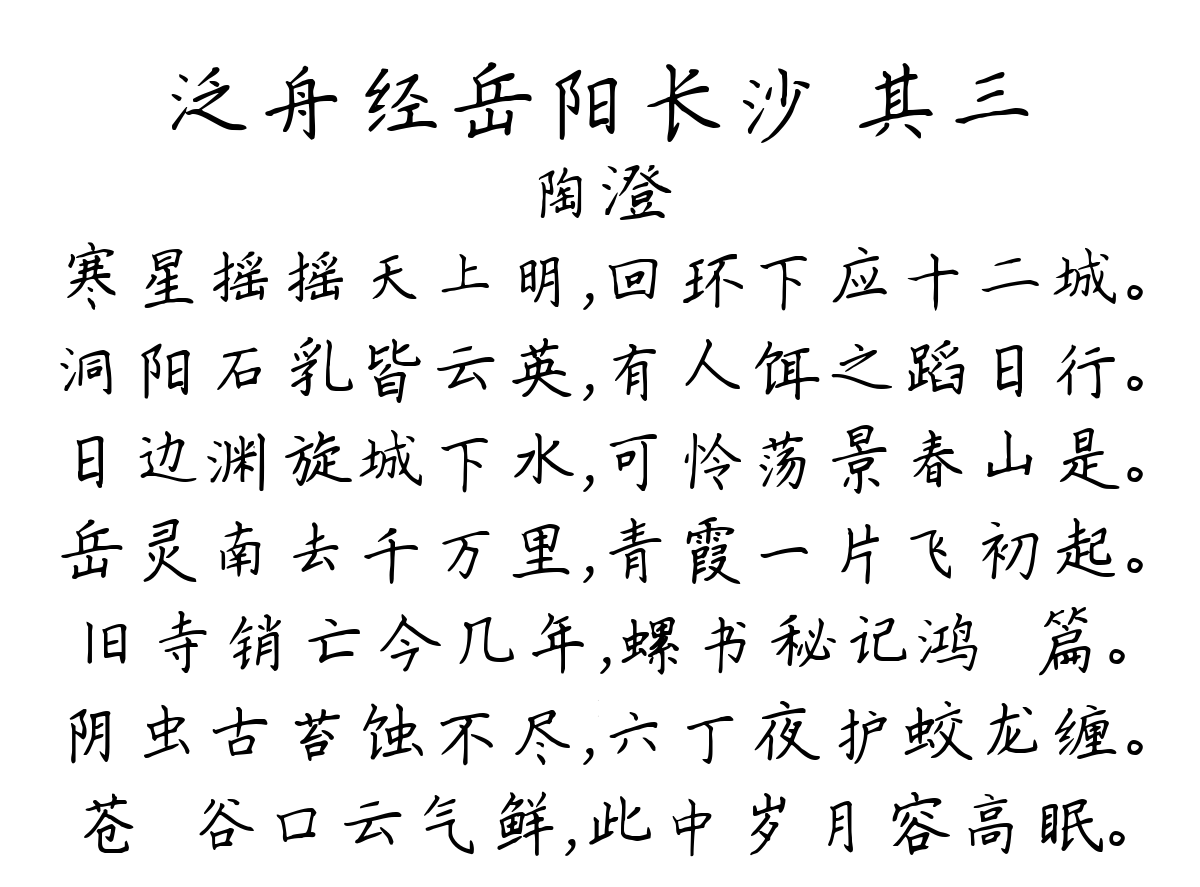 泛舟经岳阳长沙 其三
陶澄
寒星摇摇天上明,回环下应十二城。
洞阳石乳皆云英,有人饵之蹈日行。
日边渊旋城下水,可怜荡景春山是。
岳灵南去千万里,青霞一片飞初起。
旧寺销亡今几年,螺书秘记鸿 篇。
阴虫古苔蚀不尽,六丁夜护蛟龙缠。
苍 谷口云气鲜,此中岁月容高眠。